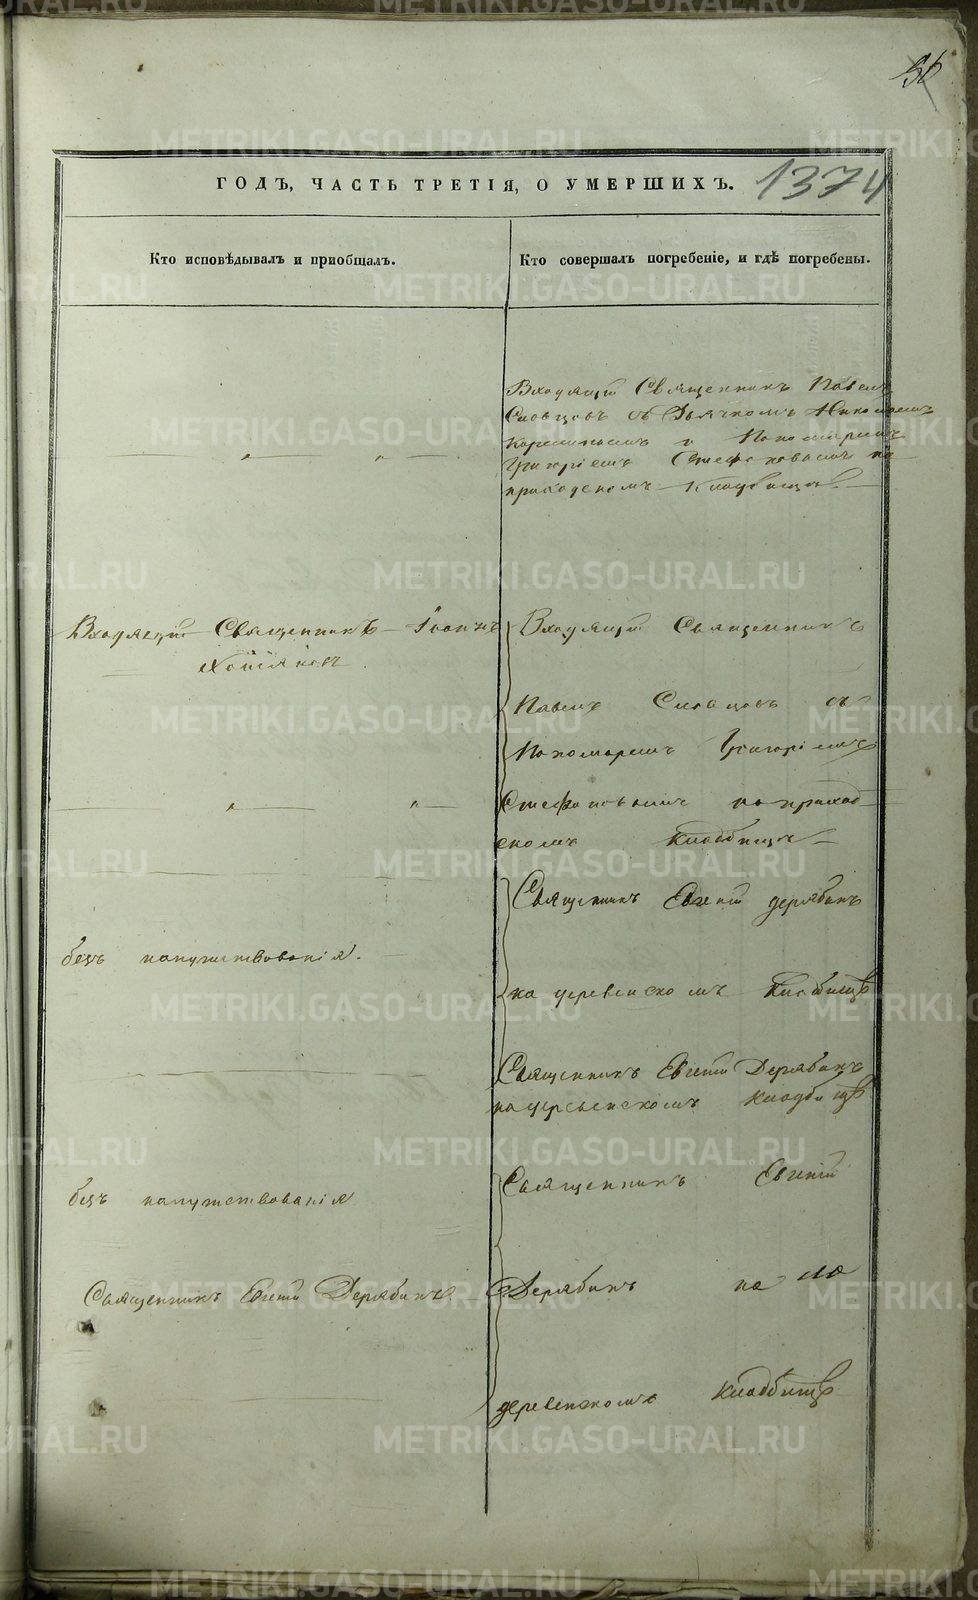 36
ГОДЪ, ЧАСТЬ ТРЕТІЯ, О УМЕРШИХЪ.
1374
Кто исповѣдывалъ и приобщалъ.
Кто совершалъ погребеніе, и гдѣ погребены.
Входящій Священникъ Павелъ
Словцовъ съ Дьячкомъ Николаемъ
и Пономаремъ
Григоріемъ Стефановымъ на
приходскомъ Кладбищѣ
Входящій Священникъ Іоаннъ
Входящій Священникъ
Павелъ Словцовъ съ
Пономаремъ Григоріемъ
Стефановымъ на приход
скомъ Кладбищѣ
Священникъ Евгеній Дерябинъ
безъ напутствованія.
на деревенскомъ Кладбищѣ
Священникъ Евгеній Дерябинъ
на деревенскомъ Кладбищѣ
безъ напутствованія
Священникъ Евгеній
Священникъ Евгеній Дерябинъ
Дерябинъ на
деревенскомъ Кладбищѣ
METRIKI.GASO-URAL.RU